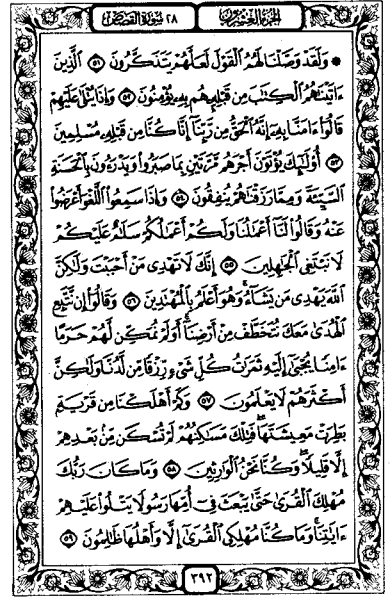 الجزء العشرون ٢٨ سورة القصص
۞ وَلَقَدْ وَصَّلْنَا لَهُمُ الْقَوْلَ لَعَلَّهُمْ يَتَذَكَّرُونَ ٥١ الَّذِينَ
ءَاتَيْنَاهُمُ الْكِتَابَ مِن قَبْلِهِ هُم بِهِ يُؤْمِنُونَ ٥٢ وَإِذَا يُتْلَىٰ عَلَيْهِمْ
قَالُوٓا ءَامَنَّا بِهِ إِنَّهُ الْحَقُّ مِن رَّبِّنَآ إِنَّا كُنَّا مِن قَبْلِهِ مُسْلِمِينَ
٥٣ أُوْلَٰٓئِكَ يُؤْتَوْنَ أَجْرَهُم مَّرَّتَيْنِ بِمَا صَبَرُوا وَيَدْرَءُونَ بِالْحَسَنَةِ
السَّيِّئَةَ وَمِمَّا رَزَقْنَاهُمْ يُنفِقُونَ ٥٤ وَإِذَا سَمِعُوا اللَّغْوَ أَعْرَضُوا
عَنْهُ وَقَالُوا لَنَآ أَعْمَالُنَا وَلَكُمْ أَعْمَالُكُمْ سَلَامٌ عَلَيْكُمْ
لَا نَبْتَغِي الْجَاهِلِينَ ٥٥ إِنَّكَ لَا تَهْدِي مَنْ أَحْبَبْتَ وَلَٰكِنَّ
اللَّهَ يَهْدِي مَن يَشَآءُ وَهُوَ أَعْلَمُ بِالْمُهْتَدِينَ ٥٦ وَقَالُوٓا إِن نَّتَّبِعِ
الْهُدَىٰ مَعَكَ نُتَخَطَّفْ مِنْ أَرْضِنَآ أَوَلَمْ نُمَكِّن لَّهُمْ حَرَمًا
ءَامِنًا يُجْبَىٰٓ إِلَيْهِ ثَمَرَاتُ كُلِّ شَيْءٍ رِّزْقًا مِّن لَّدُنَّا وَلَٰكِنَّ
أَكْثَرَهُمْ لَا يَعْلَمُونَ ٥٧ وَكَمْ أَهْلَكْنَا مِن قَرْيَةٍ
بَطِرَتْ مَعِيشَتَهَا فَتِلْكَ مَسَاكِنُهُمْ لَمْ تُسْكَن مِّن بَعْدِهِمْ
إِلَّا قَلِيلًا وَكُنَّا نَحْنُ الْوَارِثِينَ ٥٨ وَمَا كَانَ رَبُّكَ
مُهْلِكَ الْقُرَىٰ حَتَّىٰ يَبْعَثَ فِيٓ أُمِّهَا رَسُولًا يَتْلُوا عَلَيْهِمْ
ءَايَاتِنَا وَمَا كُنَّا مُهْلِكِي الْقُرَىٰٓ إِلَّا وَأَهْلُهَا ظَالِمُونَ ٥٩
٣٩٢